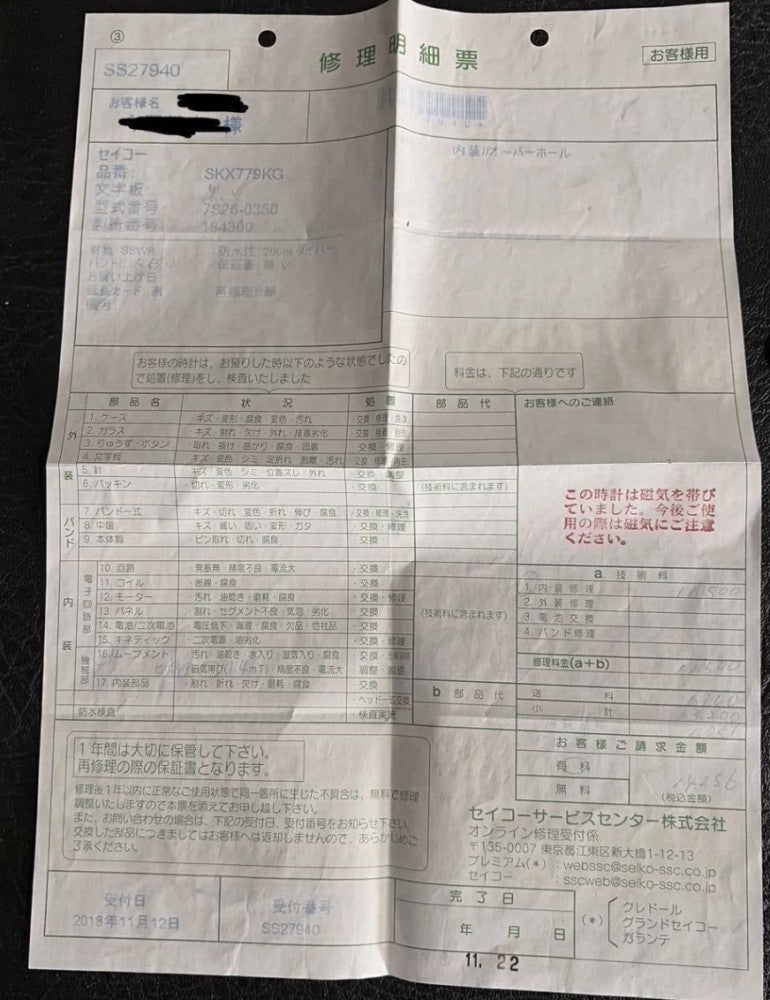 ③
修理明細票
お客様用
SS27940
お客様名
様
セイコー
品番:
SKX779KG
文字板
型式番号
7S26-0350
製造番号
内装//オーバーホール
防水性:200mダイバー
バンド:
保証書:無
お買い上げ日
再修理:
備考:
お客様の時計は、お預りした時以下のような状態でしたの
で処置(修理)をし、検査いたしました
料金は、下記の通りです
部品名
状況
処置
部品代
お客様へのご連絡
外装
1. ケース
・キズ・変形・腐食・変色・汚れ
・交換・修理・洗浄
2. ガラス
・キズ・割れ・欠け・外れ・接着劣化
3. りゅうず・ボタン
・取れ・抜け・曲がり・腐食・固着
・交換・修理
4. 文字板
・キズ・変色・シミ・足折れ・剥離・汚れ
5. 針
・キズ・変色・シミ・位置ズレ・外れ
・交換・調整
6. パッキン
・切れ・変形・劣化
・交換
(技術料に含まれます)
バンド
7. バンド一式
・キズ・切れ・変色・折れ・伸び・腐食
・交換・修理・洗浄
8. 中留
・キズ・緩い・固い・変形・ガタ
・交換・修理
9. 本体駒
・ピン取れ・切れ・腐食
・交換
この時計は磁気を帯び
ていました。今後ご使
用の際は磁気にご注意
ください。
内装
電子回路部
10. 回路
・発振無・精度不良・電流大
・交換
11. コイル
・断線・腐食
・交換
12. モーター
・汚れ・油乾き・磨耗・腐食
・交換・修理
13. パネル
・割れ・セグメント不良・気泡・劣化
・交換
14. 電池/二次電池
・電圧低下・漏液・腐食・欠品・他社品
・交換
15. キネティック
・二次電源・油劣化
・交換・修理
(技術料に含まれます)
機械部
16. ムーブメント
・汚れ・油乾き・水入り・湿気入り・腐食
・交換・分解掃除
・磁気帯び(1.4mT)・精度不良・電流大
・調整・脱磁
17. 内装部品
・割れ・折れ・欠け・磨耗・腐食
・交換
・ヘッド一式交換
防水検査
検査実施
a 技術料
1. 内装修理
2. 外装修理
3. 電池交換
4. バンド修理
修理料金(a+b)
b 部品代
送料
小計
お客様ご請求金額
有料
無料
14256
(税込金額)
1年間は大切に保管して下さい。
再修理の際の保証書となります。
修理後1年以内に正常なご使用状態で同一箇所に生じた不具合は、無料で修理
調整いたしますので本票を添えてお申し越し下さい。
また、お問い合わせの場合は、下記の受付日、受付番号をお知らせ下さい。
交換した部品につきましてはお客様へは返却しませんので、あらかじめご
了承ください。
セイコーサービスセンター株式会社
オンライン修理受付係
〒135-0007 東京都江東区新大橋1-12-13
プレミアム(*) : webssc@seiko-ssc.co.jp
セイコー : sscweb@seiko-ssc.co.jp
受付日
2018年11月12日
受付番号
SS27940
完了日
年 月 日
11. 22
(*)
クレドール
グランドセイコー
ガランテ